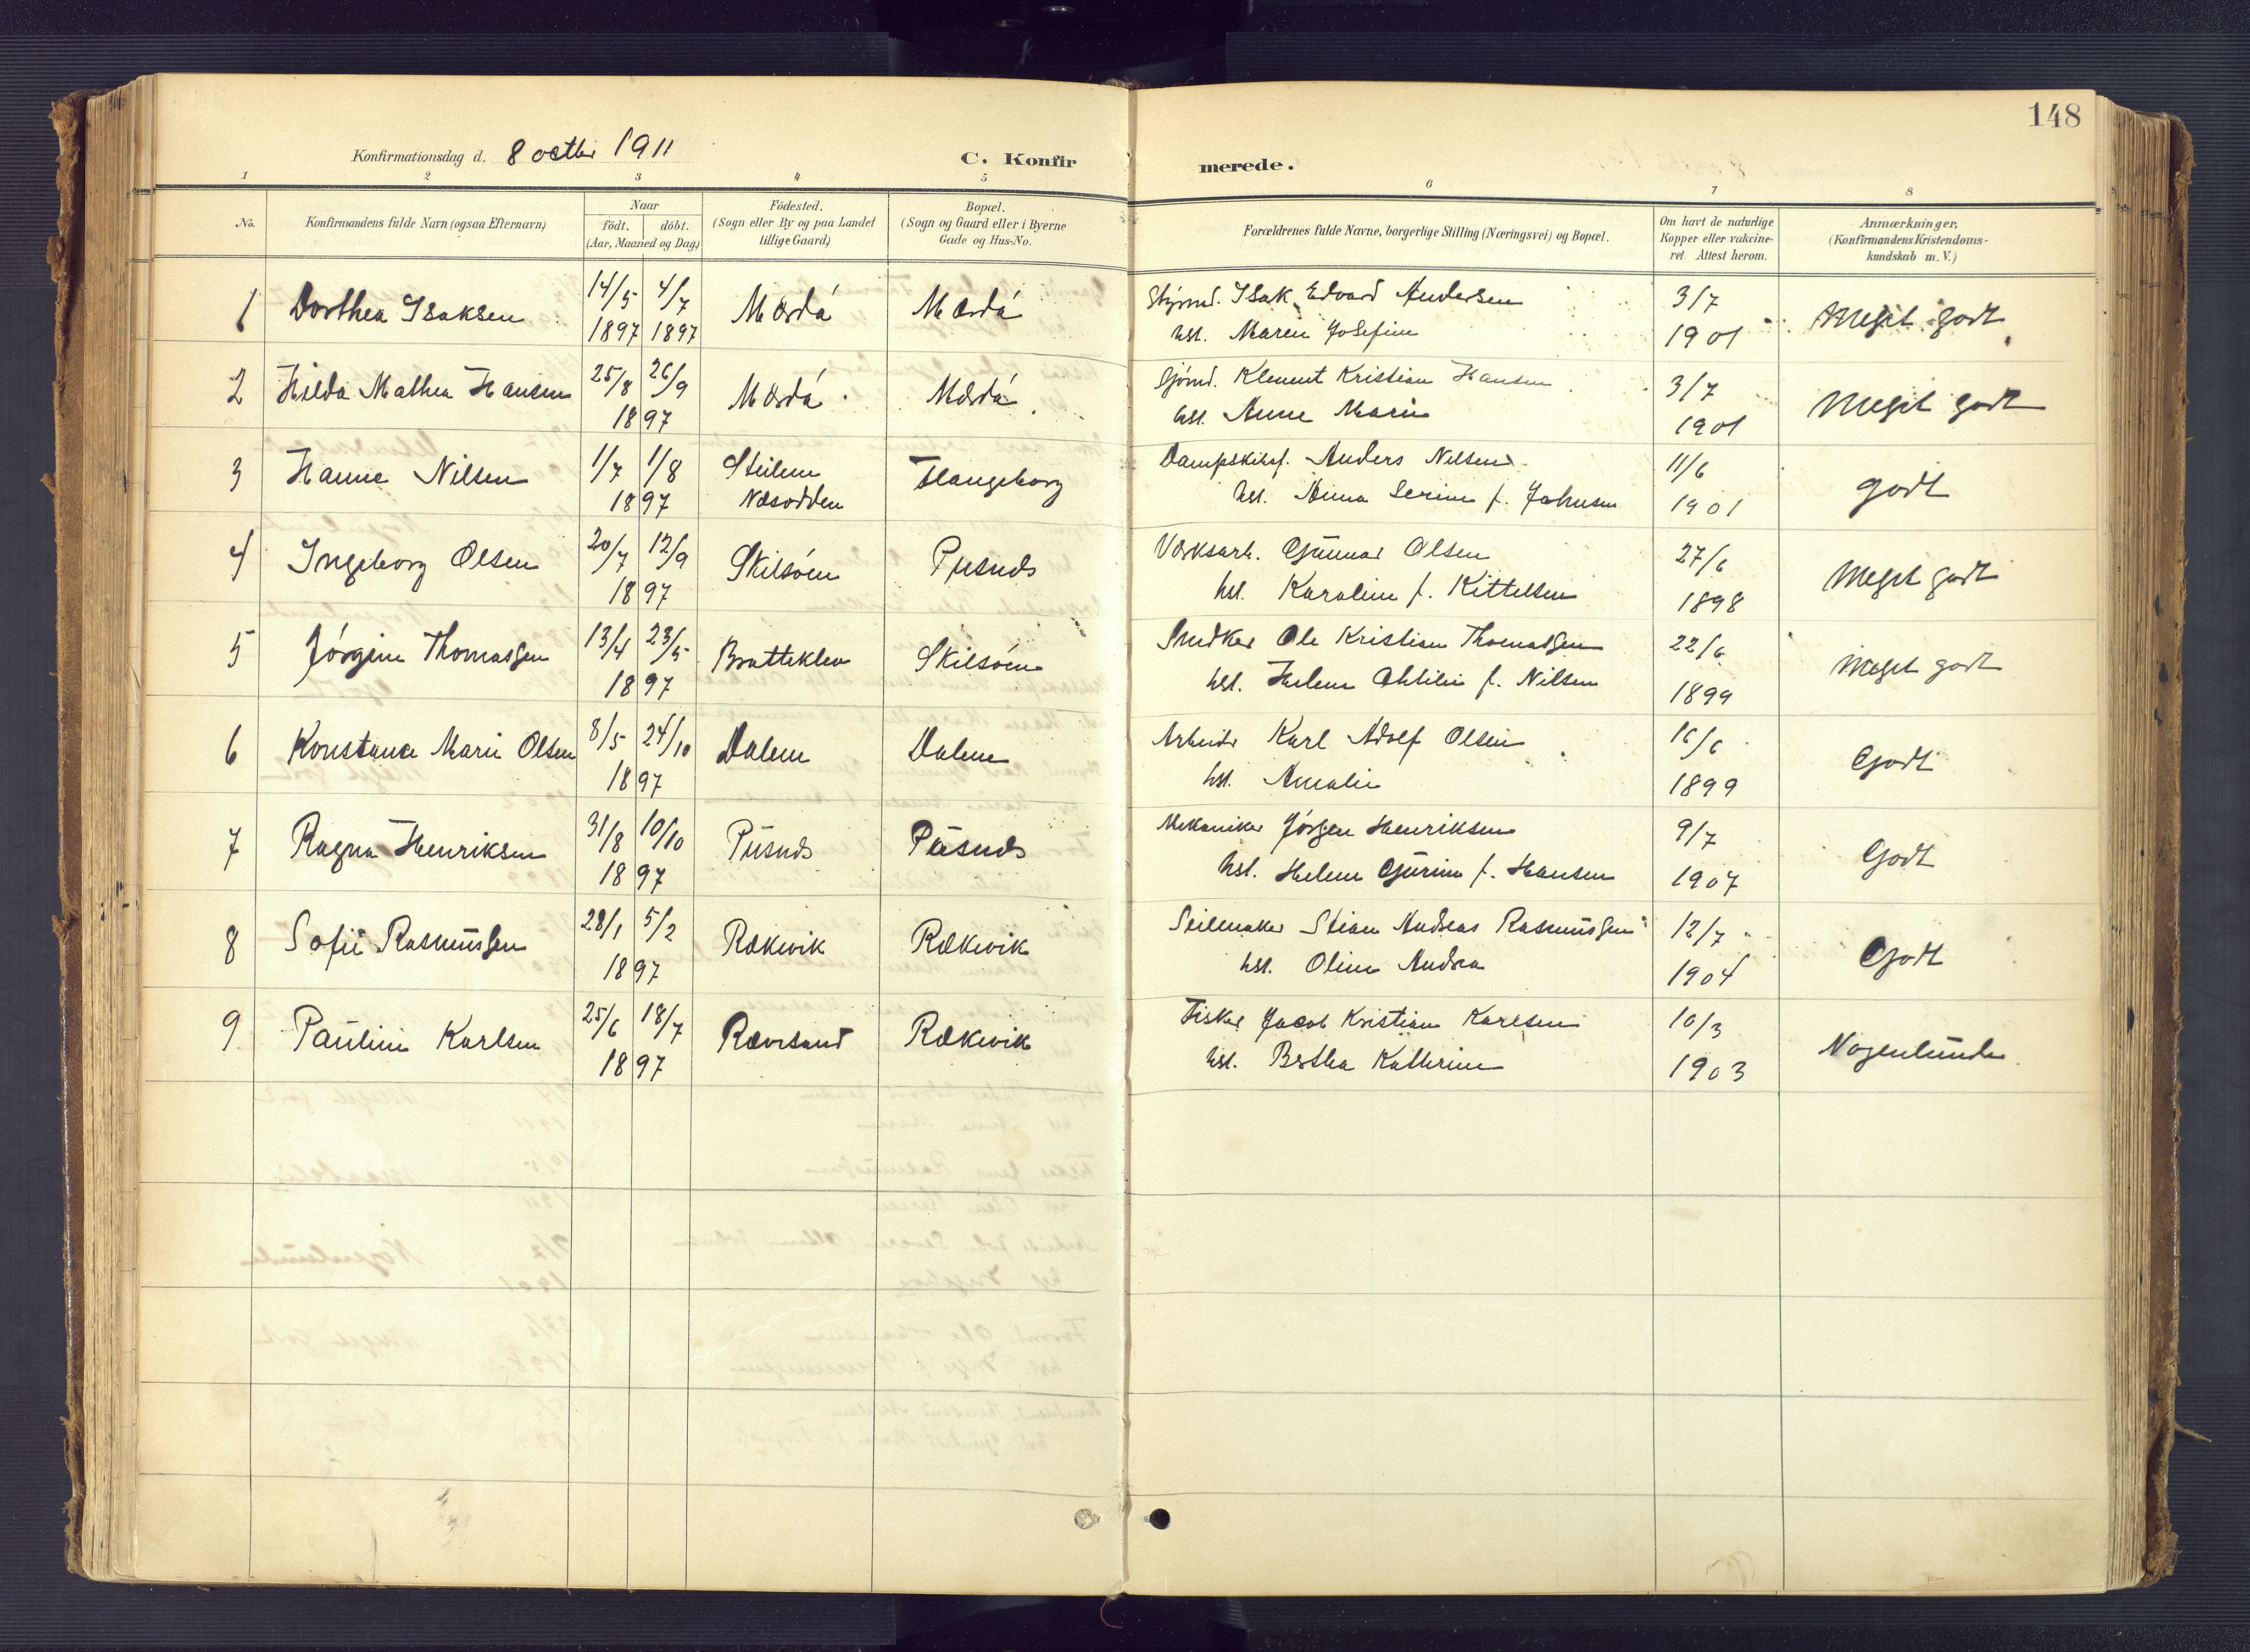 148
Konfirmationsdag d. 8 octbr 1911
C. Konfirmerede.
1 2 3 4 5 6 7 8
No.
Konfirmandens fulde Navn (ogsaa Efternavn)
Naar
födt. döbt.
(Aar, Maaned og Dag)
Födested.
(Sogn eller By og paa Landet
tillige Gaard)
Bopæl.
(Sogn og Gaard eller i Byerne
Gade og Hus-No.
Forældrenes fulde Navne, borgerlige Stilling (Næringsvei) og Bopæl.
Om havt de naturlige
Kopper eller vakcine-
ret. Attest herom.
Anmærkninger,
(Konfirmandens Kristendoms-
kundskab m. V.)
1 Dorthea Isaksen 14/5 4/7 Mærdá Mærdá Isak Edvard Andersen 3/7 Meget godt
1897 1897 hst. Maren Josefine 1901
2 Hilda Mathea Hansen 25/8 26/9 Mærdá Mærdá Sjømd. Klement Kristian Hansen 3/7 Meget godt
1897 hst. Anne Marie 1901
3 Hanne Nilsen 1/7 1/8 Steilene Flangeborg Anders Nilsen 11/6 godt
1897 Næsodden hst. Anna Serine f. Johnsen 1901
4 Ingeborg Olsen 20/7 12/9 Skilsöen Pusnes Værksarb. Gunnar Olsen 27/6 Meget godt
1897 hst. Karoline f. Kittelsen 1898
5 Jörgine Thomassen 13/4 23/5 Bratteklev Skilsöen Snedker Ole Kristian Thomassen 22/6 Meget godt
1897 hst. Helene Othilie f. Nilsen 1899
6 Konstance Marie Olsen 8/5 24/10 Dalene Dalene Arbeider Karl Adolf Olsen 16/6 Godt
1897 hst. Amalie 1899
7 Ragna Henriksen 31/8 10/10 Pusnes Pusnes Mekaniker Jörgen Henriksen 9/7 Godt
1897 hst. Helene Gurine f. Hansen 1907
8 Sofie Rasmussen 28/1 5/2 Rækevik Rækevik Seilmaker Stian Andreas Rasmussen 12/7 Godt
1897 hst. Oline Andrea 1904
9 Pauline Karlsen 25/6 18/7 Rævesand Rækevik Fisker Jacob Kristian Karlsen 10/3 Nogenlunde
1897 hst. Bertha Kathrine 1903